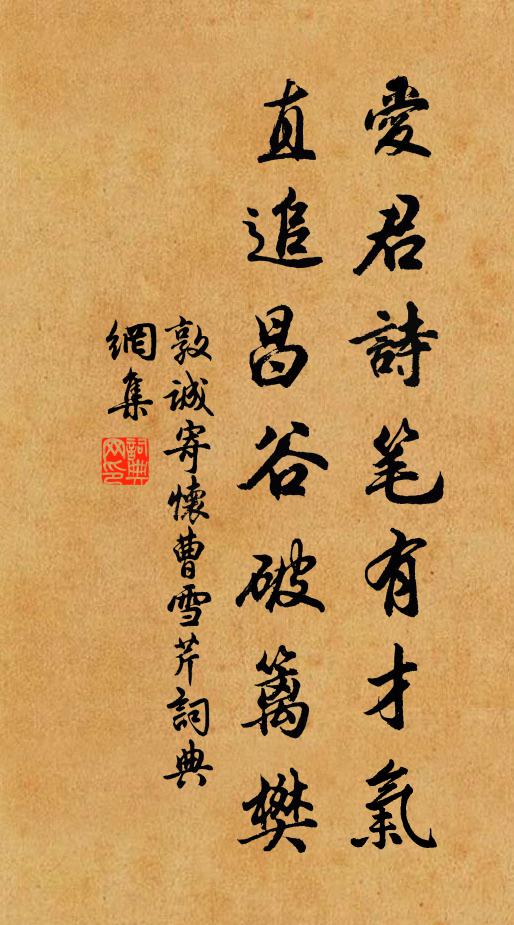 愛君詩笔有才氣
直追昌谷破籬樊
敦誠寄懷曹雪芹詞典
網集
詞典網印